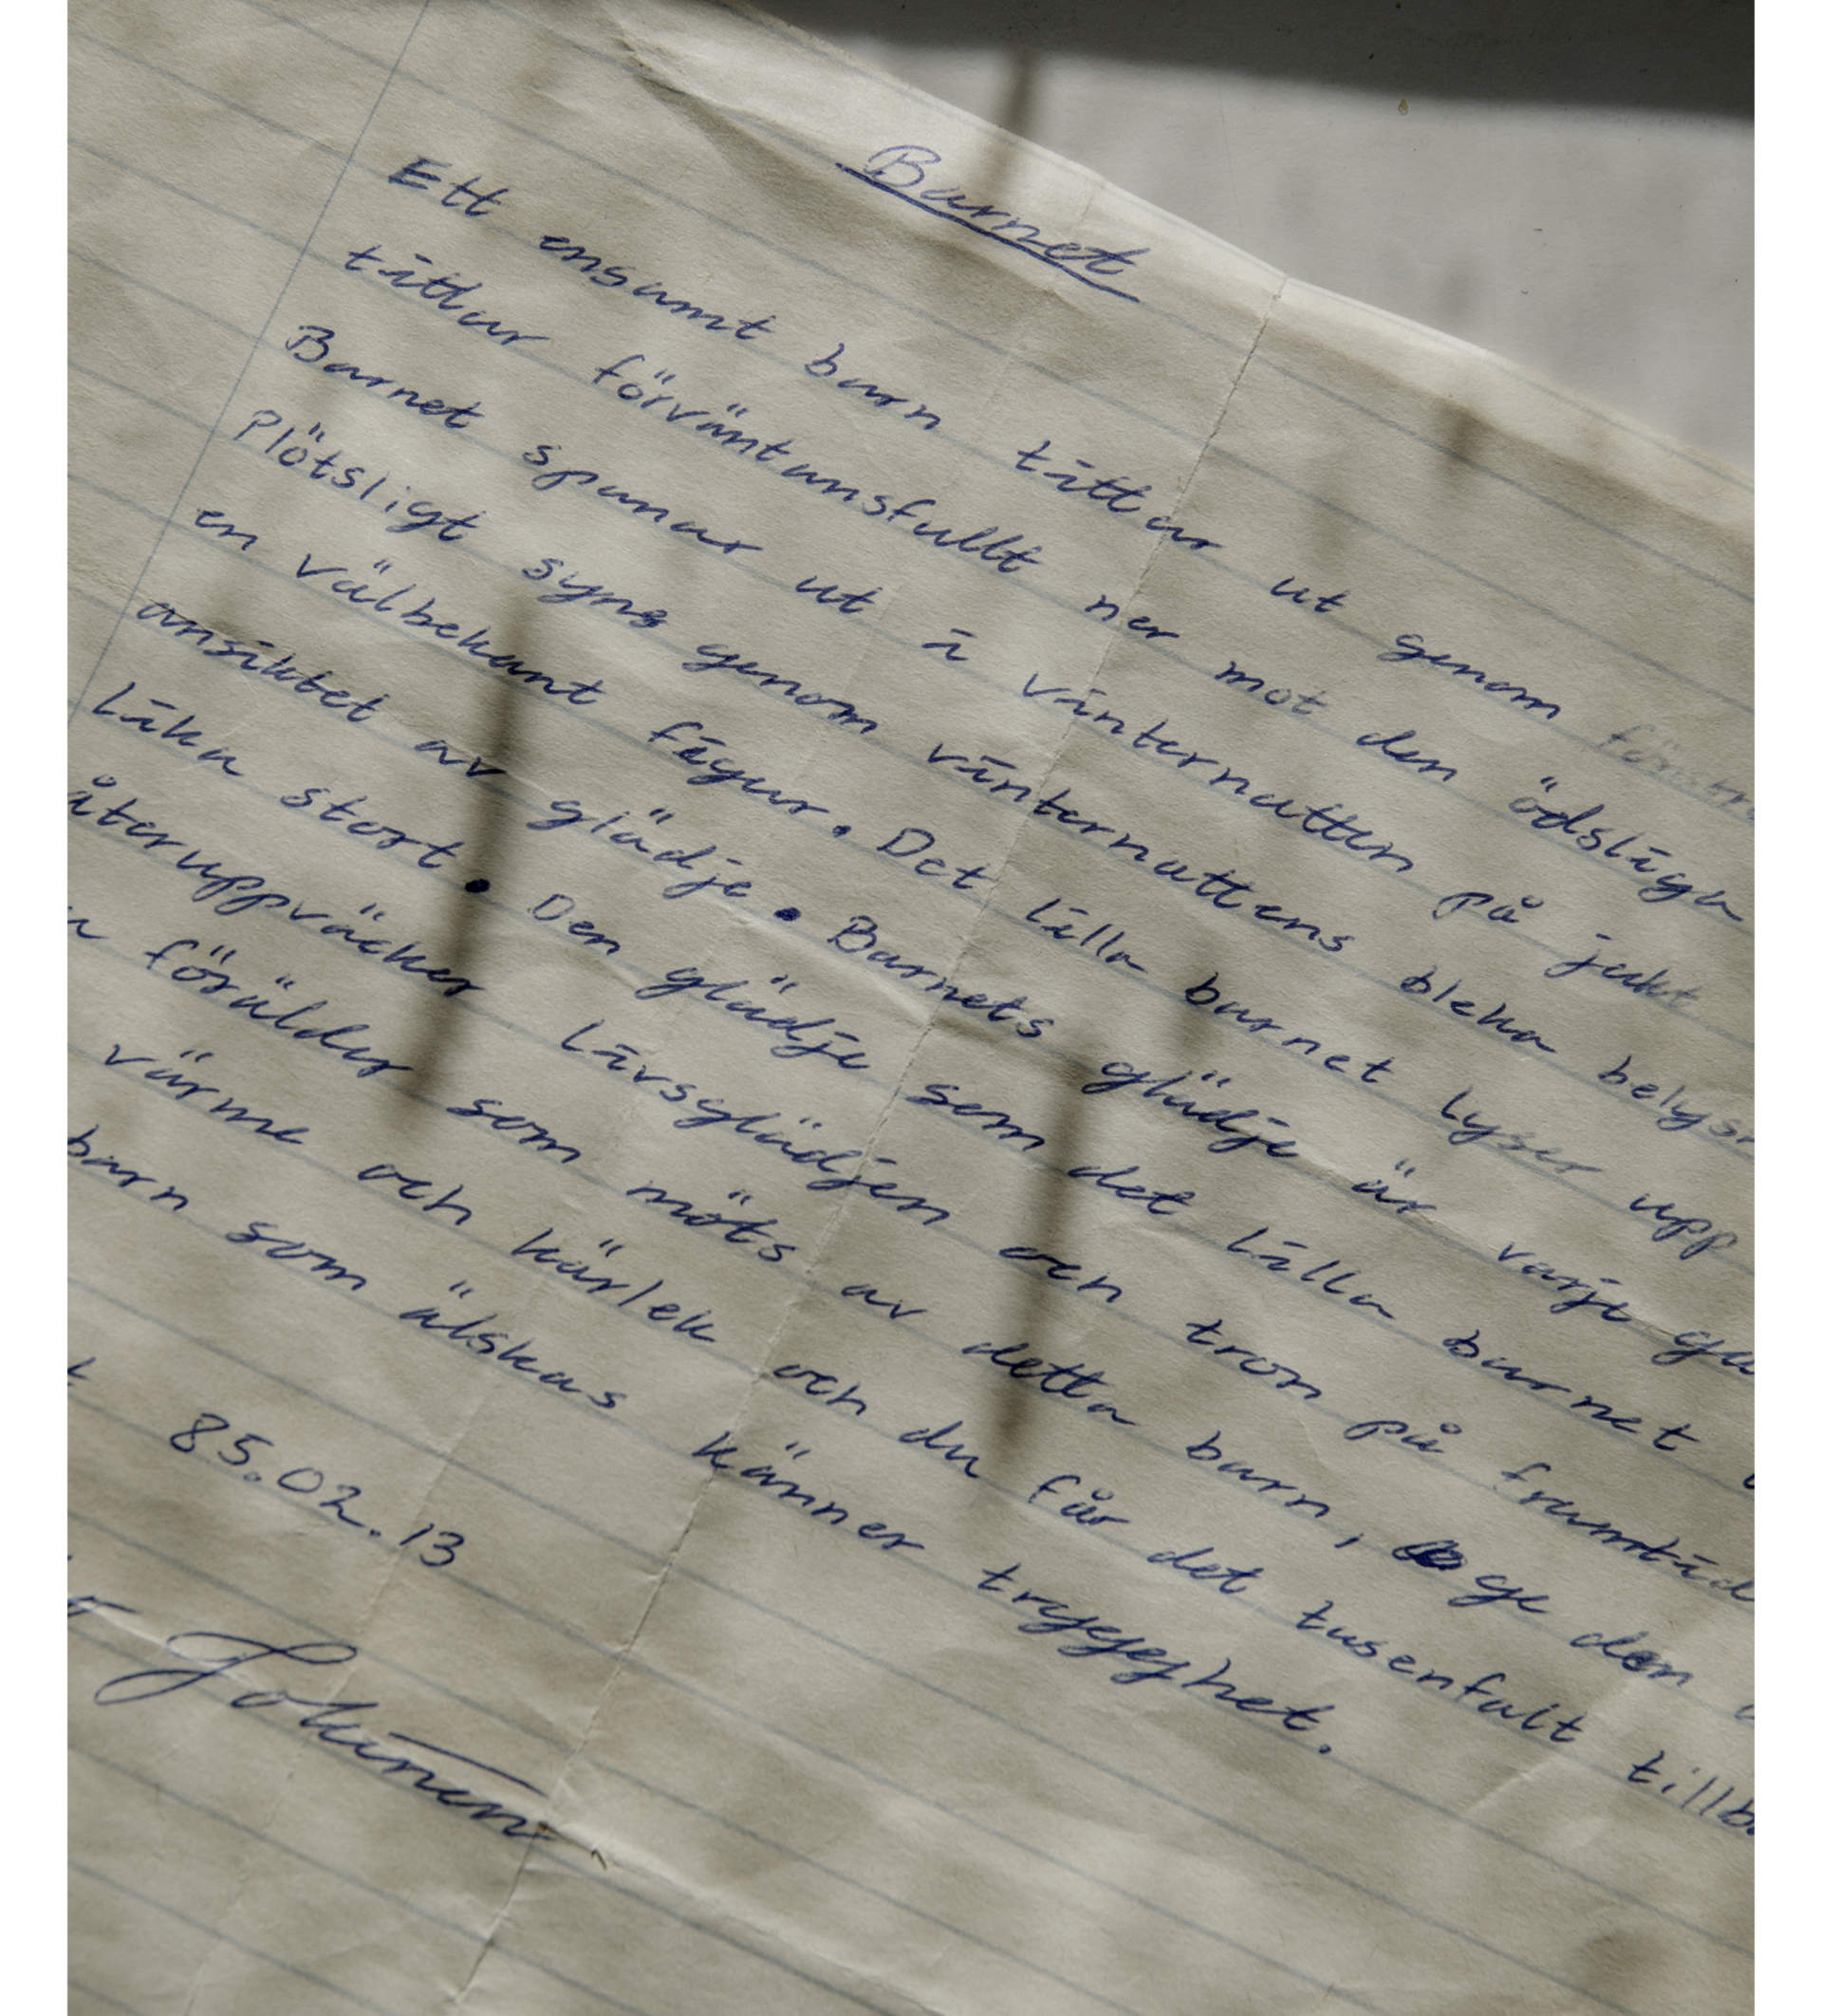 Barnet
Ett ensamt barn tittar ut genom
tittar förväntansfullt ner mot den ödsliga
Barnet spanar ut i vinternatten på jakt
Plötsligt syns genom vinternattens bleka belysn
en välbekant figur. Det lilla barnet lyser upp
ansiktet av glädje. Barnets glädje är varje gå
lika stort. Den glädje som det lilla barnet
återuppväcker livsglädjen och tron på framtid
a förälder som möts av detta barn, ge den
värme och kärlek och du får det tusenfalt tillba
barn som älskas känner trygghet.
85.02.13